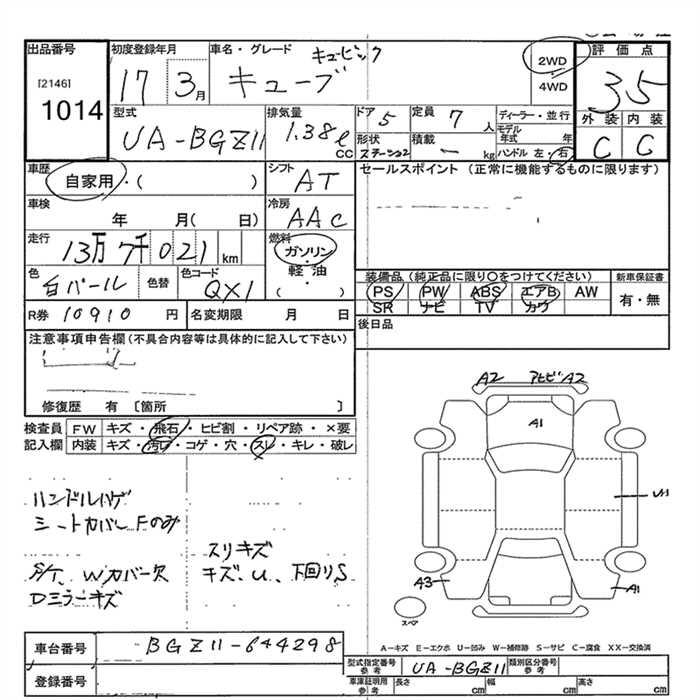 出品番号
[2146]
1014
初度登録年月
17 3月
車名・グレード
キュービック
キューブ
2WD
4WD
評価点
3.5
外装 内装
C C
型式
UA-BGZ11
排気量
1.38ℓ
CC
ドア 5
形状
ステーション
定員 7 人
積載 ー kg
ディーラー・並行
モデル年式 年
ハンドル 左・右
車歴
自家用・( )
シフト
AT
セールスポイント (正常に機能するものに限ります)
車検
年 月( 日)
冷房
AAC
走行
13万7千021 km
燃料
ガソリン
軽・油
( )
色
白パール
色替
色コード
QX1
装備品(純正品に限り○をつけてください)
PS PW ABS エアB AW
SR ナビ TV カワ
新車保証書
有・無
R券 10910 円
名変期限 月 日
後日品
注意事項申告欄(不具合内容等は具体的に記入して下さい)
修復歴 有 〔箇所 〕
検査員記入欄
FW キズ・飛石・ヒビ割・リペア跡・×要
内装 キズ・汚れ・コゲ・穴・スレ・キレ・破レ
A2 アセビA2
A1
U1
A3
A1
スペア
ハンドルハゲ
シートカバーFのみ
スリキズ
S/T、Wカバー欠
キズ、U、下回りS
Dミラーキズ
A-キズ E-エクボ U-凹み W-補修跡 S-サビ C-腐食 XX-交換済
車台番号
BGZ11-644298
登録番号
型式指定番号
参考
UA-BGZ11
類別区分番号
参考
車庫証明用
参考
長さ cm 幅 cm 高さ cm